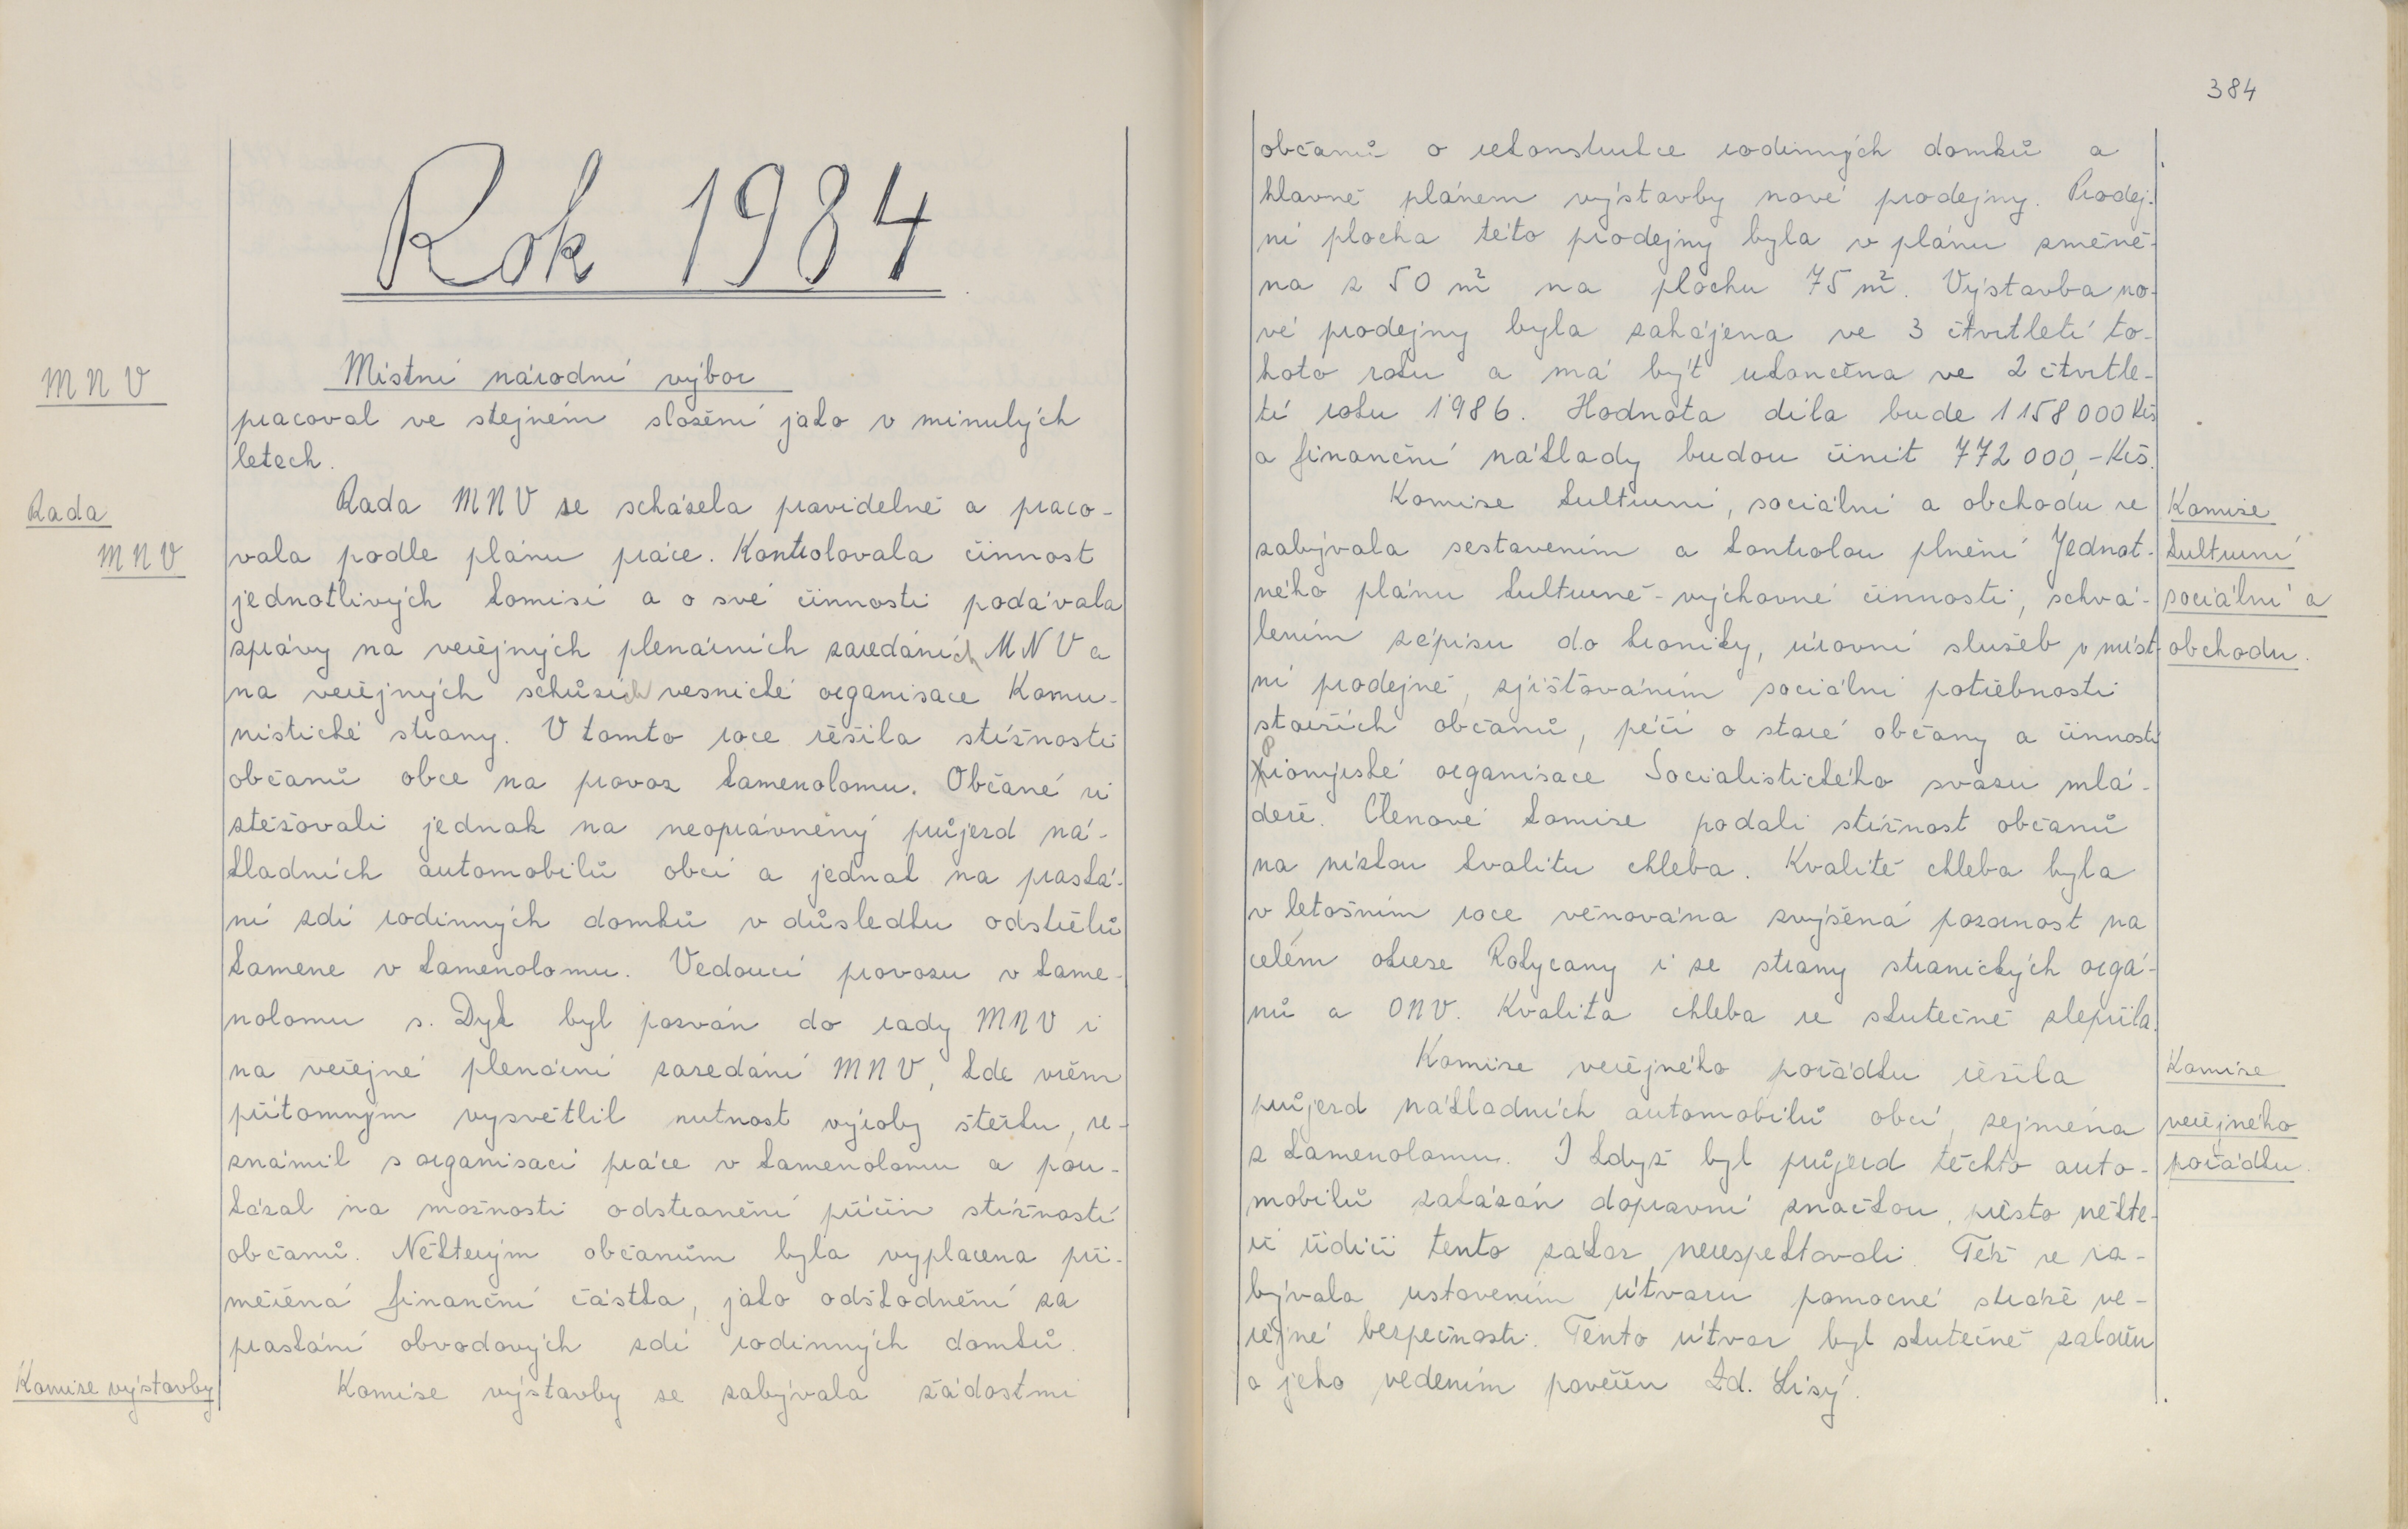 Rok 1984
MNV
Místní národní výbor
pracoval ve stejném složení jako v minulých
letech.
Rada
MNV
Rada MNV se scházela pravidelně a praco-
vala podle plánu práce. Kontrolovala činnost
jednotlivých komisí a o své činnosti podávala
zprávy na veřejných plenárních zasedáních MNV a
na veřejných schůzích vesnické organisace Komu-
nistické strany. V tomto roce řešila stížnosti
občanů obce na provoz kamenolomu. Občané si
stěžovali jednak na neoprávněný průjezd ná-
kladních automobilů obcí a jednak na praská-
ní zdí rodinných domků v důsledku odstřelů
kamene v kamenolomu. Vedoucí provozu v kame-
nolomu s. Dyk byl pozván do rady MNV i
na veřejné plenární zasedání MNV, kde všem
přítomným vysvětlil nutnost výroby štěrku, se-
známil s organisací práce v kamenolomu a pou-
kázal na možnosti odstranění příčin stížností
občanů. Některým občanům byla vyplacena při-
měřená finanční částka, jako odškodnění za
praskání obvodových zdí rodinných domků.
Komise výstavby
Komise výstavby se zabývala žádostmi
384
občanů o rekonstrukce rodinných domků a
hlavně plánem výstavby nové prodejny. Prodej-
ní plocha této prodejny byla v plánu změně-
na z 50 m² na plochu 75 m². Výstavba no-
vé prodejny byla zahájena ve 3 čtvrtletí to-
hoto roku a má být ukončena ve 2 čtvrtle-
tí roku 1986. Hodnota díla bude 1 158 000 Kčs
a finanční náklady budou činit 772 000,- Kčs.
Komise kulturní, sociální a obchodu se
zabývala sestavením a kontrolou plnění Jednot-
ného plánu kulturně-výchovné činnosti, schvá-
lením zápisu do kroniky, úrovní služeb v míst-
ní prodejně, zjišťováním sociální potřebnosti
starších občanů, péčí o staré občany a činností
Pionýrské organisace Socialistického svazu mlá-
deže. Členové komise podali stížnost občanů
na nízkou kvalitu chleba. Kvalitě chleba byla
v letošním roce věnována zvýšená pozornost na
celém okrese Rokycany i ze strany stranických orgá-
nů a ONV. Kvalita chleba se skutečně zlepšila.
Komise
kulturní
sociální a
obchodu.
Komise veřejného pořádku řešila
průjezd nákladních automobilů obcí, zejména
z kamenolomu. I když byl průjezd těchto auto-
mobilů zakázán dopravní značkou, přesto někte-
ří řidiči tento zákaz nerespektovali. Též se za-
bývala ustavením útvaru pomocné stráže ve-
řejné bezpečnosti. Tento útvar byl skutečně založen
a jeho vedením pověřen Zd. Lisý.
Komise
veřejného
pořádku.